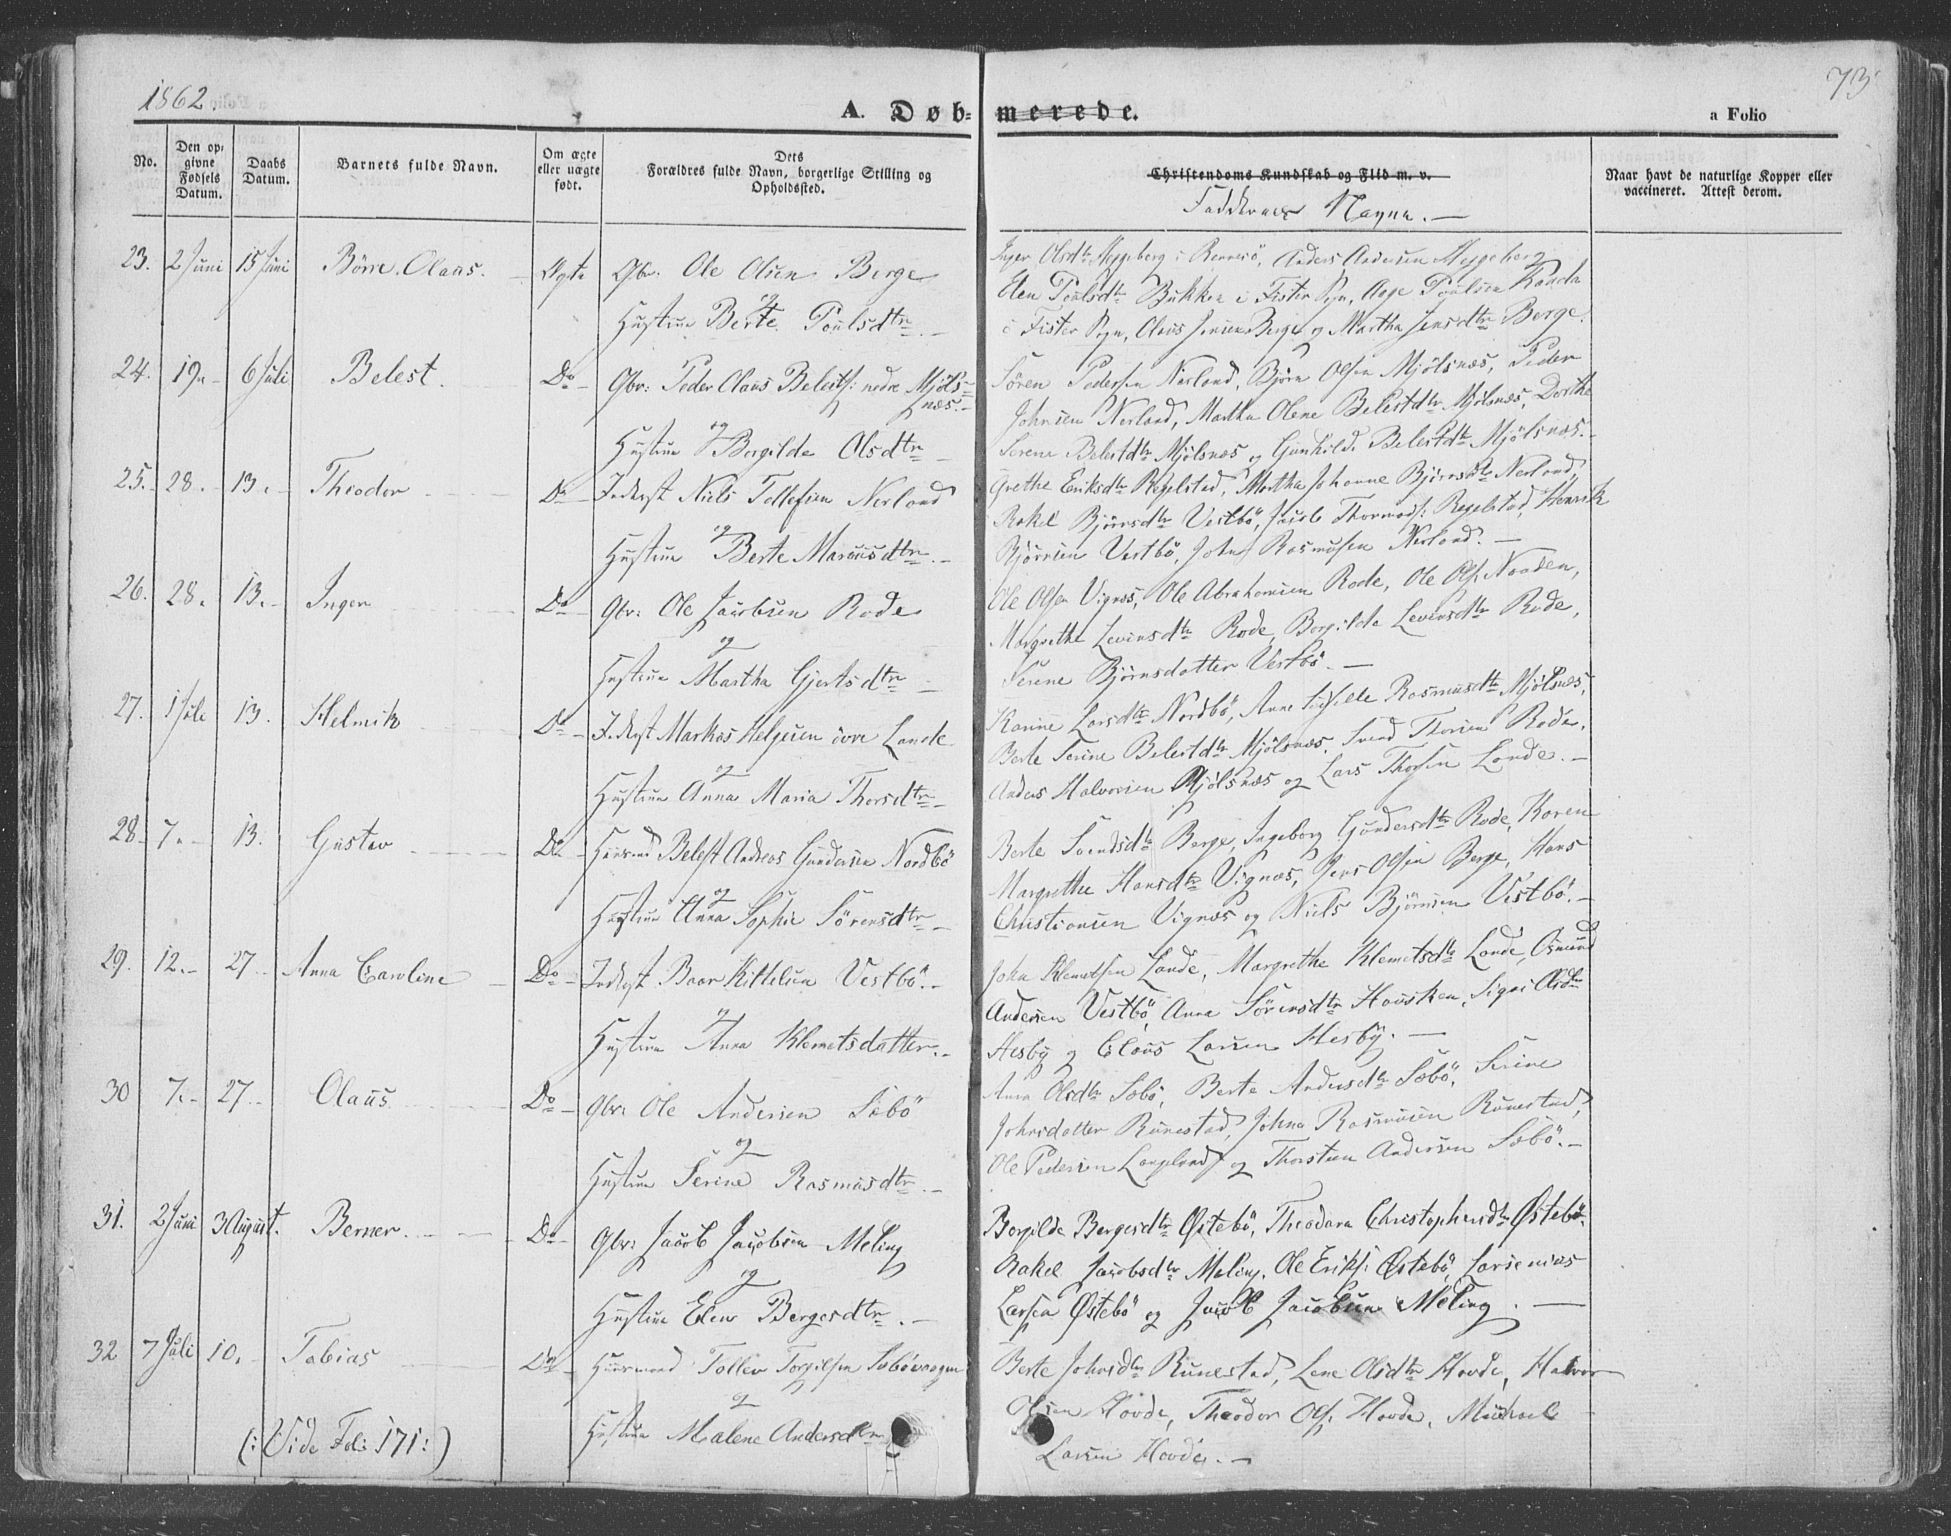 1862.
73
A. Døb-
merede.
a Folio
No.
Den op-
givne
Fødsels
Datum.
Daabs
Datum.
Barnets fulde Navn.
Om ægte
eller uægte
født.
Dets
Forældres fulde Navn, borgerlige Stilling og
Opholdssted.
Christendoms Kundskab og Flid m. v.
Faddernes Navne. —
Naar havt de naturlige Kopper eller
vaccineret. Attest derom.
23. 2 Juni 15 Juni Börre Olaus. Ægte Gbr. Ole Olsen Berge
og
Hustrue Berte Poulsdtr. —
Inger Olsdtr Meggeberg i Rennesö, Anders Andersen Meggeberg
Elen Poulsdtr Bukken i Fister Sgn, Aage Poulsen
i Fister Sgn, Olaus Jensen Berge og Martha Jensdtr Berge.
24. 19 - 6 Juli Belest. Do - Gbr: Peder Olaus Belests: nedre Mjöls-
næs. -
og
Hustrue Borgilde Olsdtr
Sören Pedersen Nerland, Björn Olsen Mjölsnæs, Peder
Johnsen Nerland, Martha Olene Belestdtr Mjölsnæs, Dorthe
Serene Belestdtr Mjölsnæs og Gunhild Belestdtr Mjölsnæs. -
25. - 28. - 13. - Theodor Do - Inderst Niels Tollefsen Nerland
og
Hustrue Berte Marcusdtr. -
Grethe Eriksdtr Regelstad, Martha Johanne Björnsdtr Nerland,
Rakel Björnsdtr Vestbö, Jacob Thormods: Regelstad, Henrik
Björnsen Vestbö, John Rasmusen Nerland. —
26. 28. 13. - Inger Do - Gbr: Ole Jacobsen Rode
og
Hustrue Martha Gjertsdtr -
Ole Olsen Vignæs, Ole Abrahamsen Rode, Ole Ols: Naaden,
Margrethe Levinsdtr Rode, Borgilda Levinsdtr Rode,
Serene Björnsdatter Vestbö. —
27. 1 Juli 13. Helmik Do - Inderst Markus Helgesen övre Lande
og
Hustrue Anna Maria Thorsdtr -
Karine Larsdtr Nordbö, Anne Rasmusdtr Mjölsnæs,
Berte Serine Belestdtr Mjölsnæs, Svend Thorsen Rode,
Anders Halvorsen Mjölsnæs og Lars Thorsen Lande. —
28 - 7. - 13. Gustav Do - Huusmd Belest Andreas Gundersen Nordbö
og
Hustrue Anna Sophie Sörensdtr -
Berte Svendsdtr Berge, Ingeborg Gundersdtr Rode, Karen
Margrethe Hansdtr Vignæs, Jens Olsen Berge, Hans
Christiansen Vignæs og Niels Björnsen Vestbö. -
29. 12. - 27 Anna Caroline Do - Inderst Baar Kittelsen Vestbö. -
og
Hustrue Anna Klemetsdatter. -
John Klemetsen Lande, Margrethe Klemetsdtr Lande, Osmund
Andersen Vestbö, Anna Sörensdtr Hausken, Signi Olsdtr
Hesby og Claus Larsen Hesby. —
30 7. - 27. - Olaus Do - Gbr: Ole Andersen Säbö
og
Hustrue Serine Rasmusdtr. -
Anna Olsdtr Säbö, Berte Andersdtr Säbö, Serine
Johnsdatter Runestad, John Rasmusen Runestad,
Ole Pedersen Langeland og Thorsten Andersen Säbö. -
31. 2 Juni 3 August. Berner. Do - Gbr: Jacob Jacobsen Meling
og
Hustrue Elen Bergesdtr. -
Borgilde Bergesdtr Østebö, Theodora Christophersdtr Østebö.
Rakel Jacobsdtr Meling. Ole Eriks: Østebö, Larsenius
Larsen Østebö og Jacob Jacobsen Meling. —
32 7 Juli 10. - Tobias Do - Huusmand Tollev Torgilsen Säbövaagen
og
Hustrue Malene Andersdtr
(: Vide Fol: 171 :)
Berte Johnsdtr Runestad, Lene Olsdtr Hovde, Halvor
Olsen Hovde, Theodor Ols: Hovde, Michael
Larsen Hovde. —